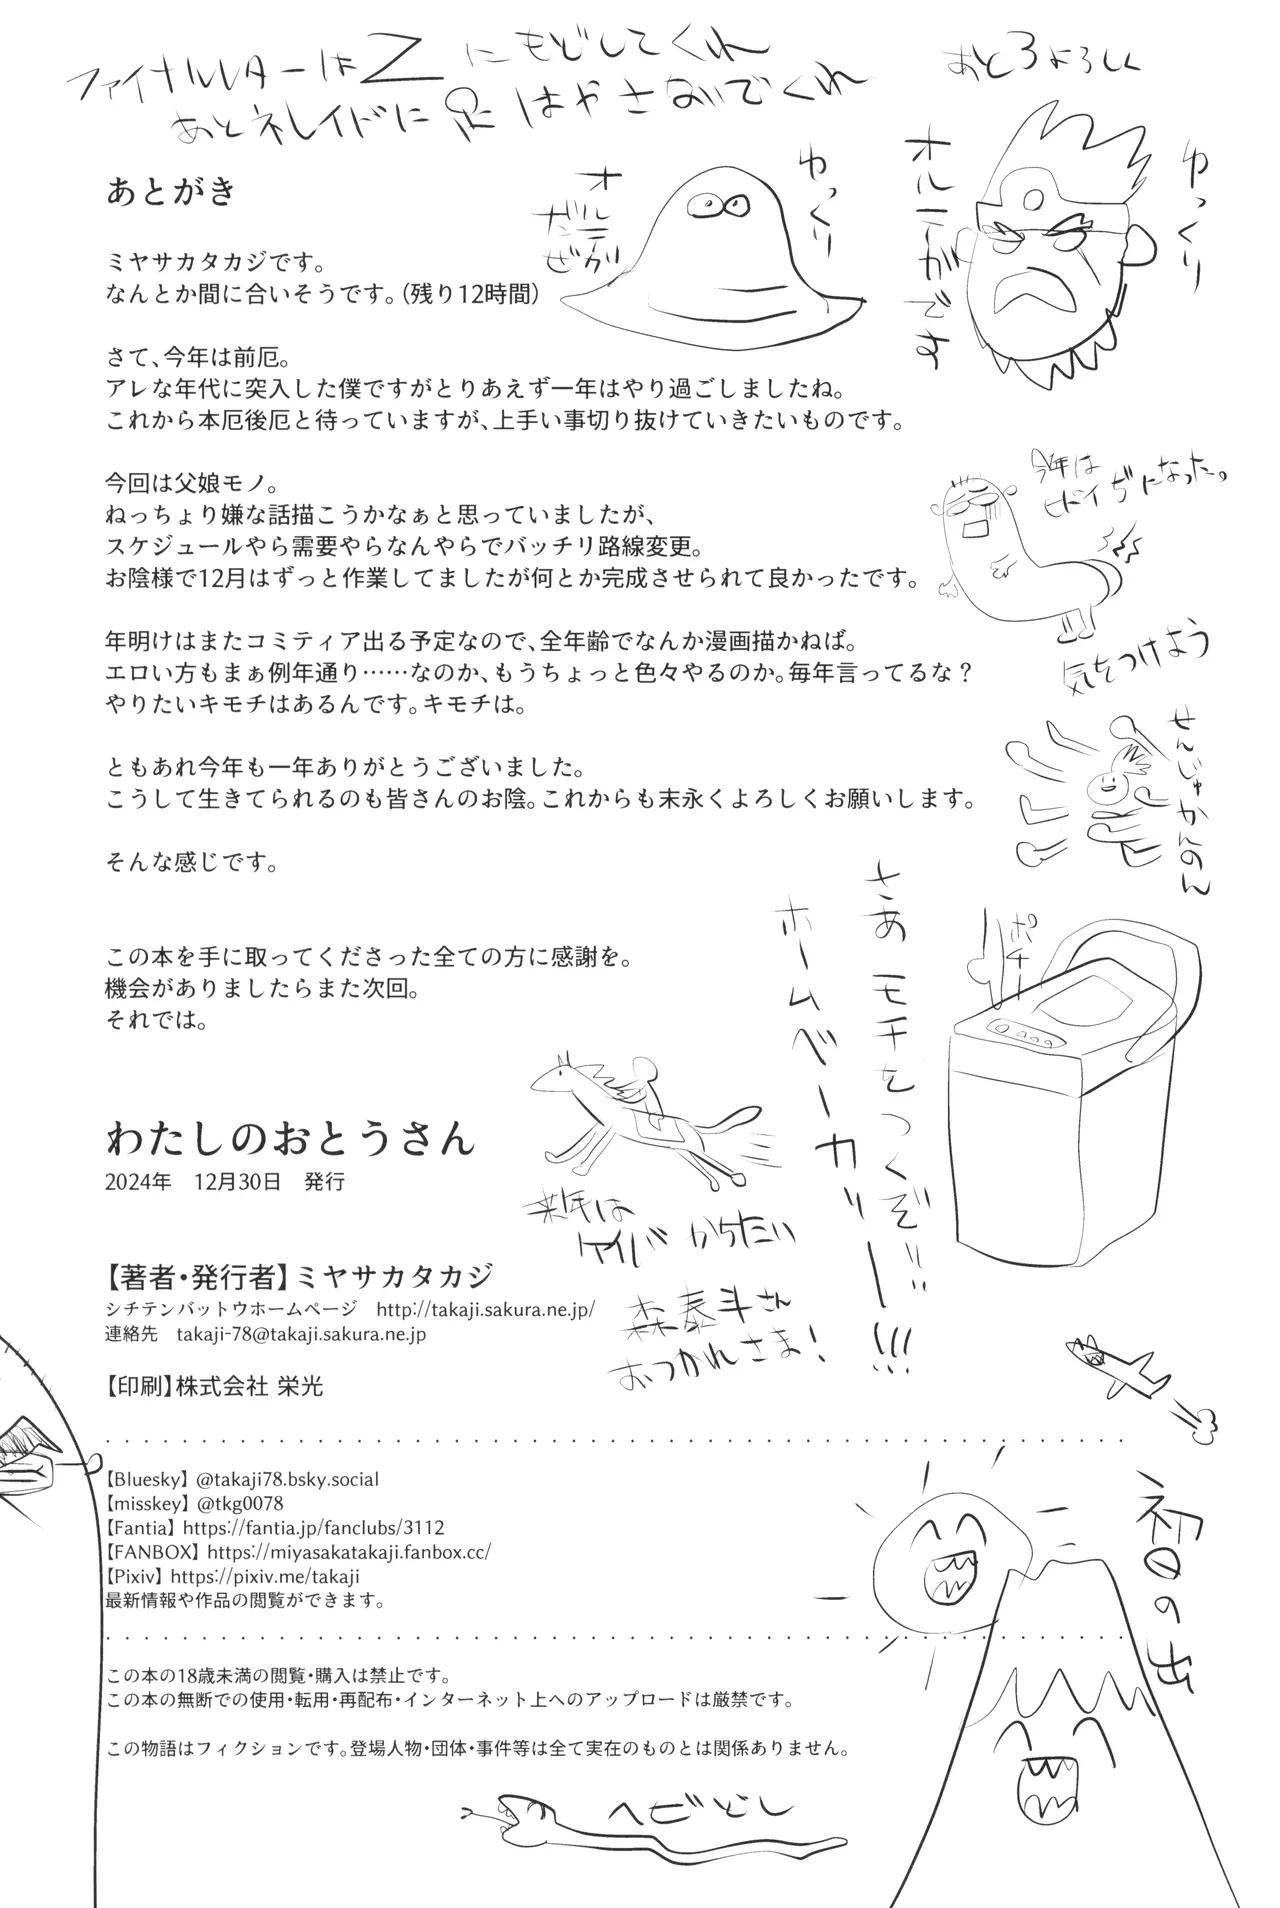 ファイナルレターは Z にもどしてくれ
あとネレイドに足はやさないでくれ
あと3よろしく
ゆっくり
オルテガだぜ
ゆっくり
オルテガです
あとがき
ミヤサカタカジです。
なんとか間に合いそうです。(残り12時間)
さて、今年は前厄。
アレな年代に突入した僕ですがとりあえず一年はやり過ごしましたね。
これから本厄後厄と待っていますが、上手い事切り抜けていきたいものです。
今回は父娘モノ。
ねっちょり嫌な話描こうかなぁと思っていましたが、
スケジュールやら需要やらなんやらでバッチリ路線変更。
お陰様で12月はずっと作業してましたが何とか完成させられて良かったです。
今年は
ヒドイぢになった。
気をつけよう
年明けはまたコミティア出る予定なので、全年齢でなんか漫画描かねば。
エロい方もまぁ例年通り……なのか、もうちょっと色々やるのか。毎年言ってるな?
やりたいキモチはあるんです。キモチは。
せんじゅかんのん
ともあれ今年も一年ありがとうございました。
こうして生きてられるのも皆さんのお陰。これからも末永くよろしくお願いします。
そんな感じです。
さあ モチをつくぞ!!!
ホームベーカリー!!!
ポチー
この本を手に取ってくださった全ての方に感謝を。
機会がありましたらまた次回。
それでは。
わたしのおとうさん
2024年 12月30日 発行
来年は
ケイバ からたい
森泰斗さん
おつかれさま!
【著者・発行者】ミヤサカタカジ
シチテンバットウホームページ http://takaji.sakura.ne.jp/
連絡先 takaji-78@takaji.sakura.ne.jp
【印刷】株式会社 栄光
【Bluesky】@takaji78.bsky.social
【misskey】@tkg0078
【Fantia】https://fantia.jp/fanclubs/3112
【FANBOX】https://miyasakatakaji.fanbox.cc/
【Pixiv】https://pixiv.me/takaji
最新情報や作品の閲覧ができます。
初日の出
この本の18歳未満の閲覧・購入は禁止です。
この本の無断での使用・転用・再配布・インターネット上へのアップロードは厳禁です。
この物語はフィクションです。登場人物・団体・事件等は全て実在のものとは関係ありません。
ヘビどし